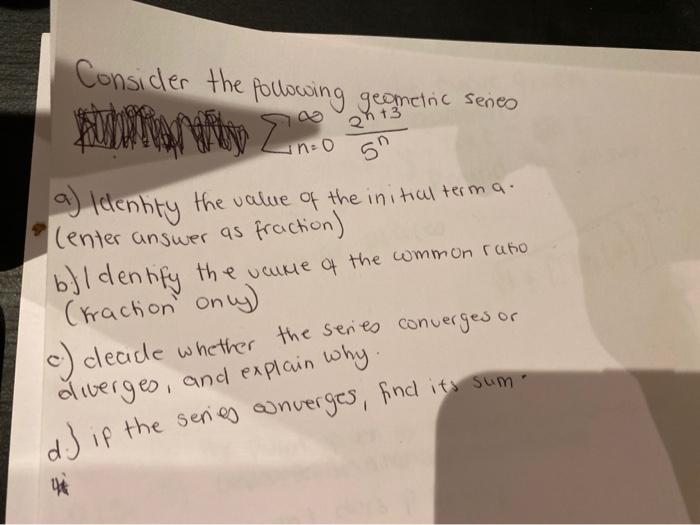 Consider the following geometric series
∑_{n=0}^{∞} \frac{2^{n+3}}{5^n}
a) Identity the value of the initial term a.
(enter answer as fraction)
b) Identify the value of the common ratio
(fraction only)
c) decide whether the series converges or
diverges, and explain why.
d.) if the series converges, find its sum.